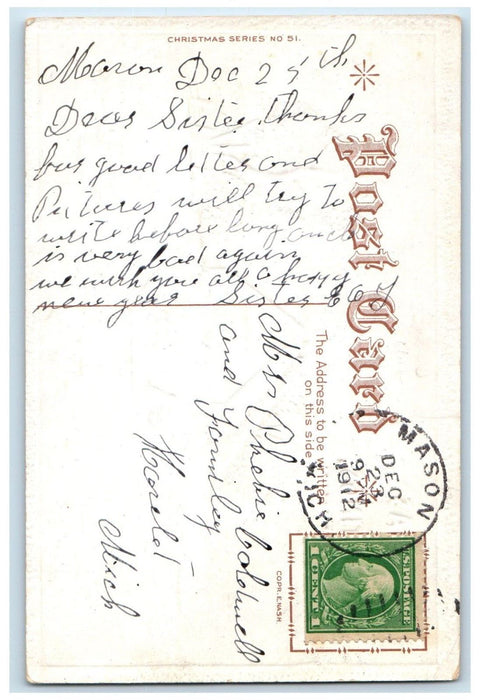 CHRISTMAS SERIES NO 51.
Mason Dec 25th
Dear Sister thanks
for good letter and
Pictures will try to
write before long
is very bad again
we wish you all a happy
new year Sister
Post Card
The Address to be written
on this side.
MASON
DEC
23
9
1912
MICH
U.S. POSTAGE
1 CENT 1
COPR. E. NASH.
Mrs Phebie Coldwell
and Famley
Mich